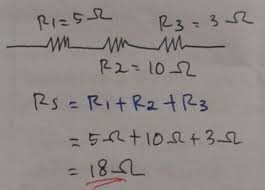 R1=5Ω R3=3Ω
R2=10Ω
RS = R1+R2+R3
= 5Ω+10Ω+3Ω
= 18Ω